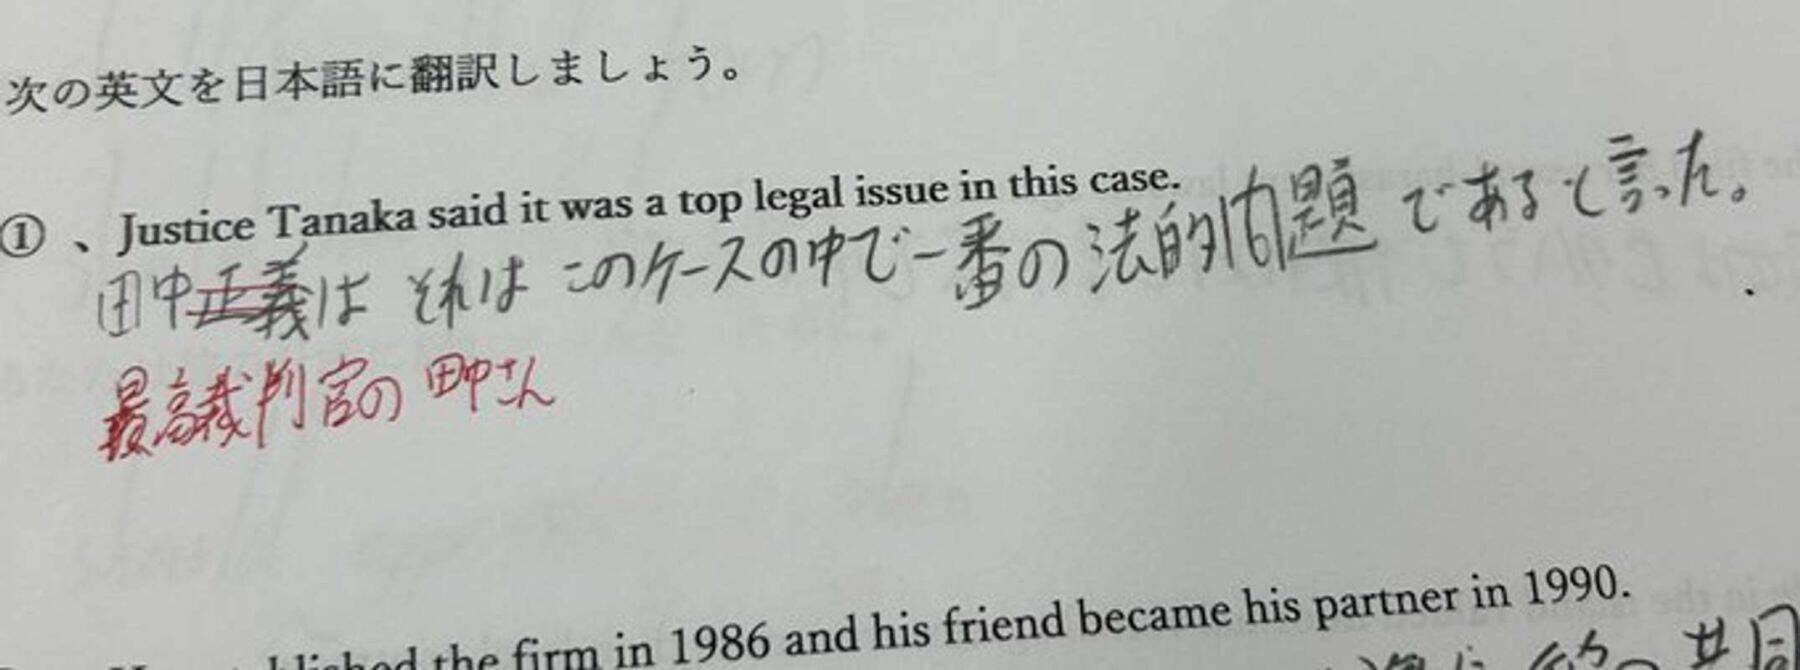 次の英文を日本語に翻訳しましょう。
①、Justice Tanaka said it was a top legal issue in this case.
田中正義は それは このケースの中で一番の法的問題であると言った。
最高裁判官の 田中さん
the firm in 1986 and his friend became his partner in 1990.
共同